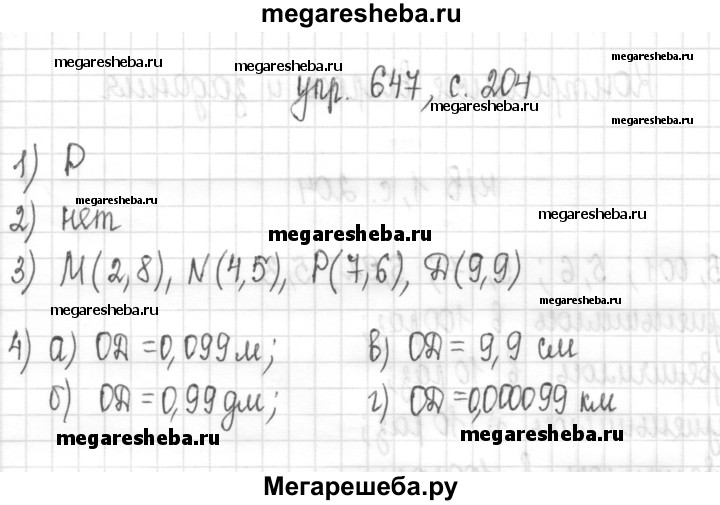 megaresheba.ru
megaresheba.ru megaresheba.ru megaresheba.ru
упр. 647, с. 204
megaresheba.ru
megaresheba.ru
1) D
megaresheba.ru
2) нет
megaresheba.ru
megaresheba.ru
3) M(2,8), N(4,5), P(7,6), D(9,9)
megaresheba.ru
megaresheba.ru
4) а) OD = 0,099 м; в) OD = 9,9 см
б) OD = 0,99 дм; г) OD = 0,000099 км
megaresheba.ru megaresheba.ru
Мегарешеба.ру